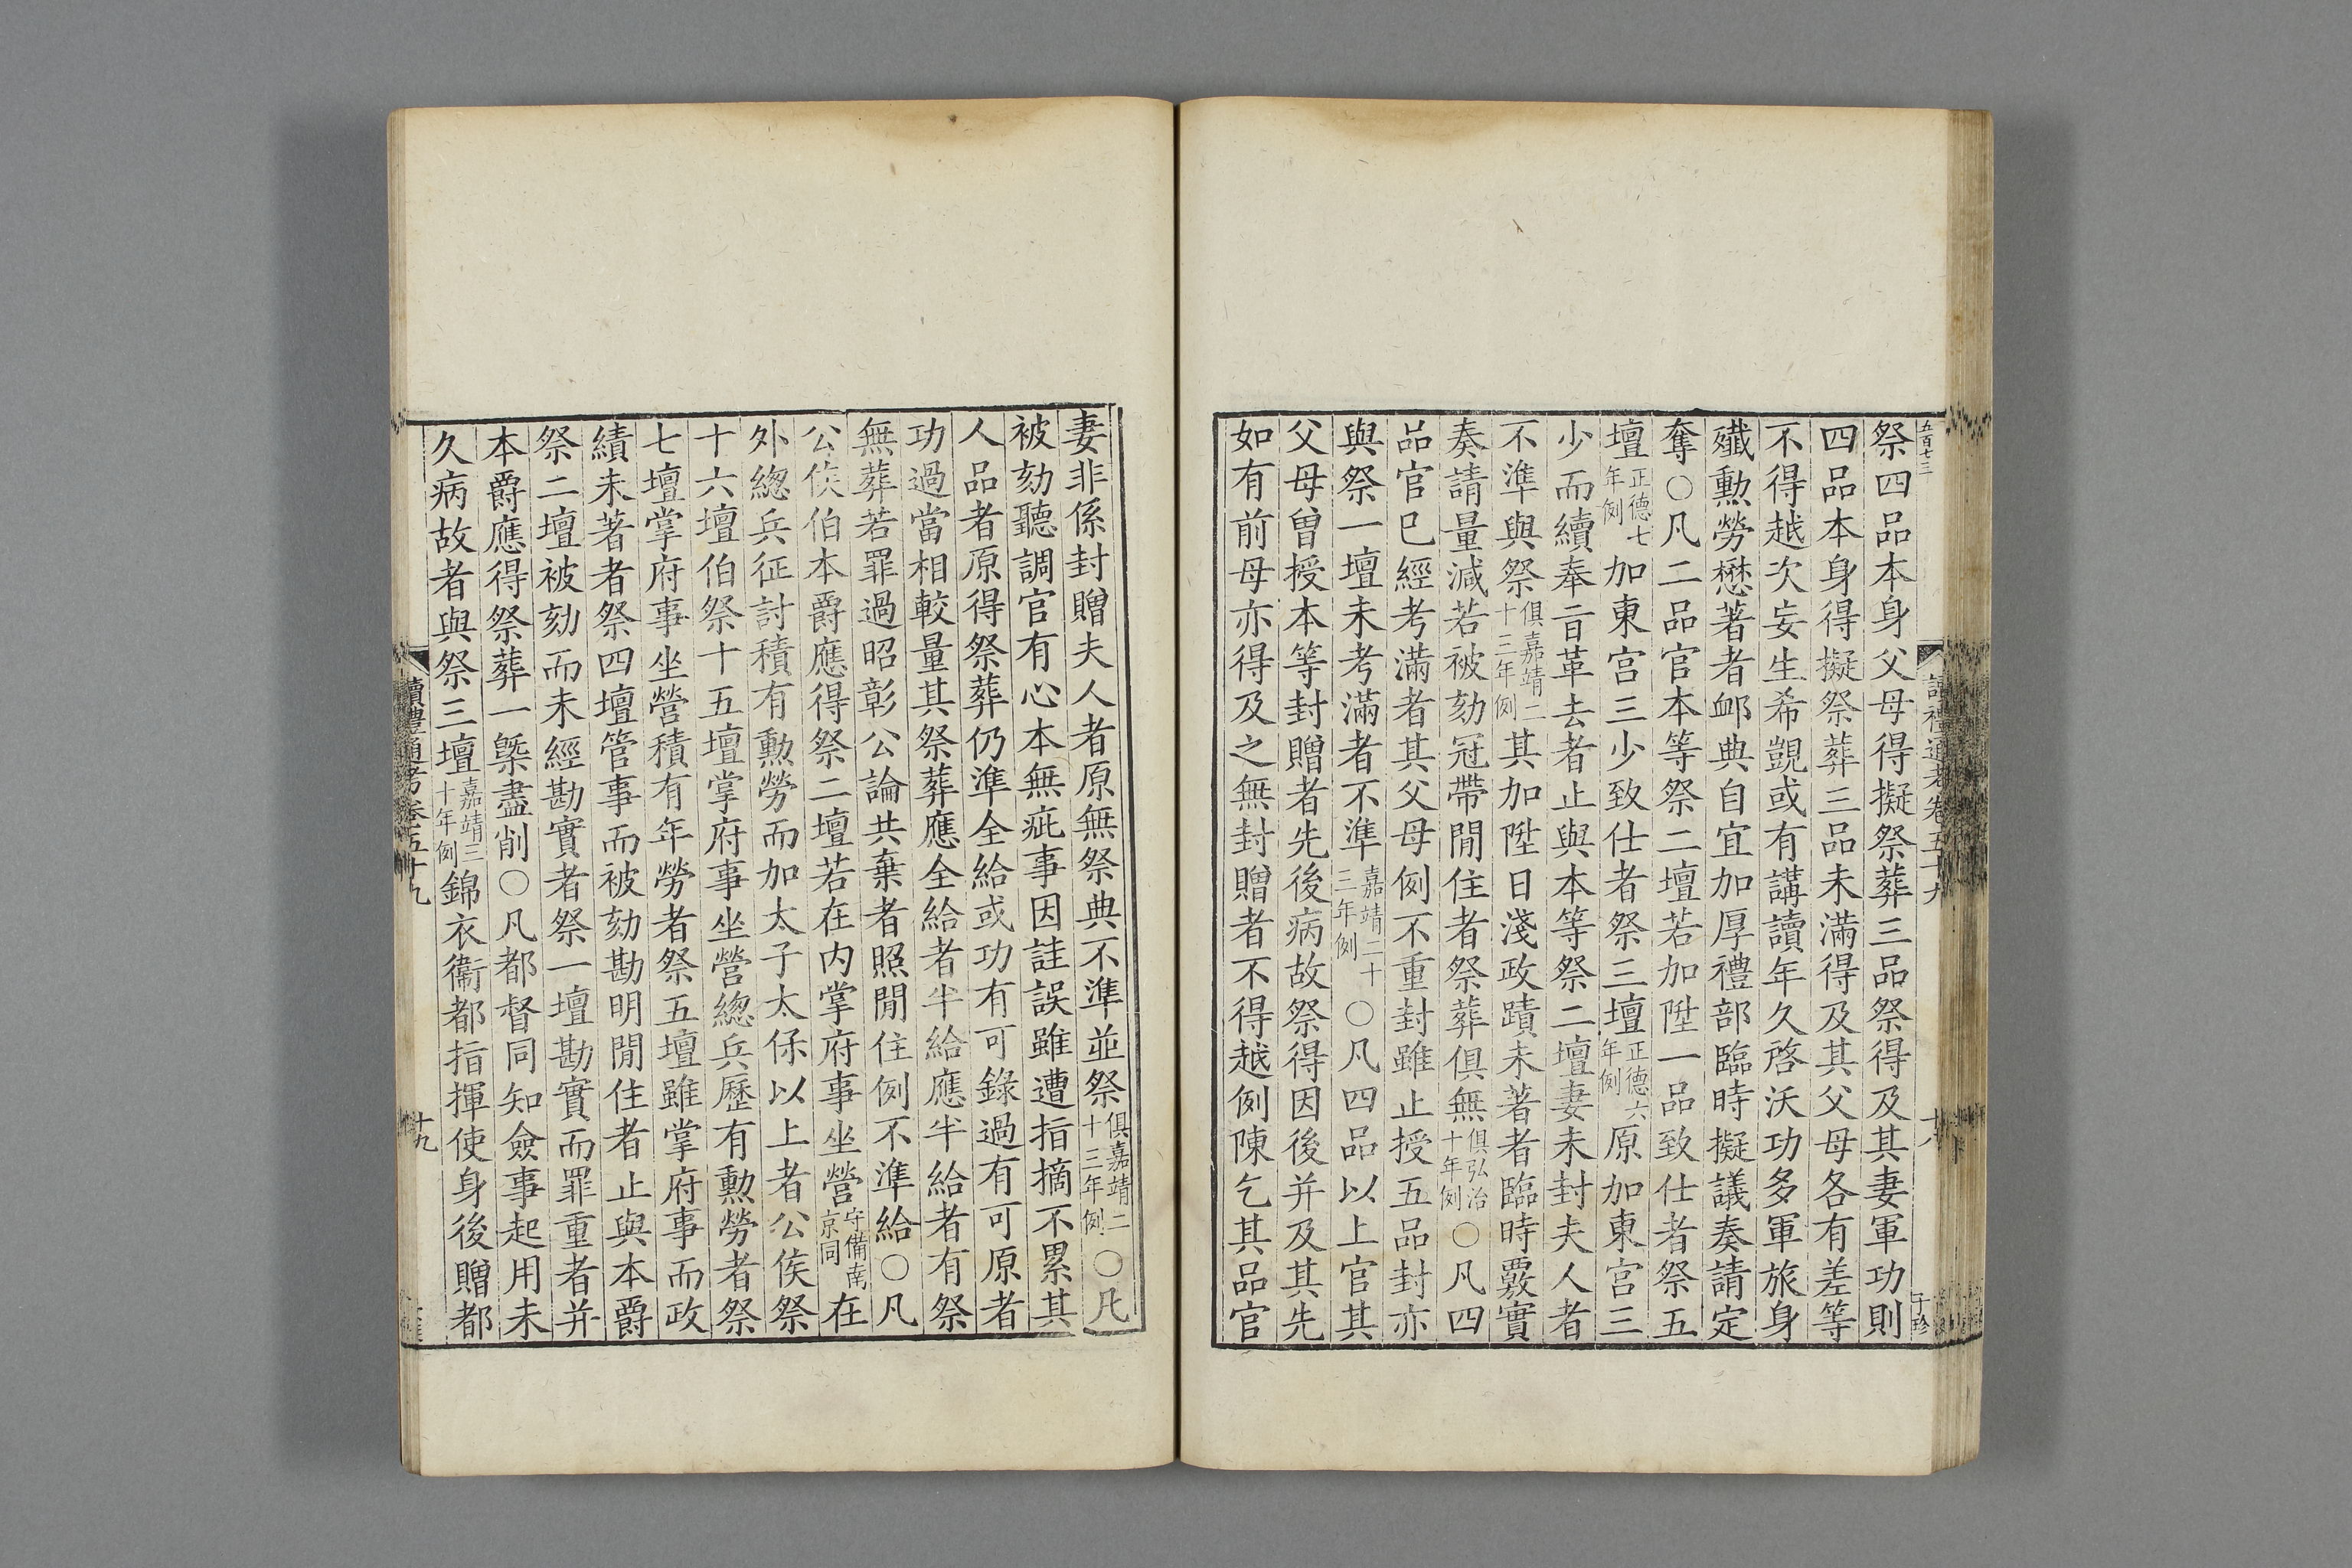 五百七三
讀禮通考卷五十九
十八
祭四品本身父母得擬祭葬三品祭得及其妻軍功則
四品本身得擬祭葬三品未滿得及其父母各有差等
不得越次妄生希覬或有講讀年久啓沃功多軍旅身
殲勳勞懋著者卹典自宜加厚禮部臨時擬議奏請定
奪○凡二品官本等祭二壇若加陞一品致仕者祭五
壇正德七年例加東宫三少致仕者祭三壇正德六年例原加東宫三
少而續奉旨革去者止與本等祭二壇妻未封夫人者
不準與祭俱嘉靖二十三年例其加陞日淺政蹟未著者臨時覈實
奏請量減若被劾冠帶閒住者祭葬俱無俱弘治十年例○凡四
品官已經考滿者其父母例不重封雖止授五品封亦
與祭一壇未考滿者不準嘉靖二十三年例○凡四品以上官其
父母曾授本等封贈者先後病故祭得因後并及其先
如有前母亦得及之無封贈者不得越例陳乞其品官
妻非係封贈夫人者原無祭典不準並祭俱嘉靖二十三年例○凡
被劾聽調官有心本無疵事因詿誤雖遭指摘不累其
人品者原得祭葬仍準全給或功有可錄過有可原者
功過當相較量其祭葬應全給者半給應半給者有祭
無葬若罪過昭彰公論共棄者照閒住例不準給○凡
公侯伯本爵應得祭二壇若在内掌府事坐營守備南京同在
外總兵征討積有勳勞而加太子太保以上者公侯祭
十六壇伯祭十五壇掌府事坐營總兵歷有勳勞者祭
七壇掌府事坐營積有年勞者祭五壇雖掌府事而政
績未著者祭四壇管事而被劾勘明閒住者止與本爵
祭二壇被劾而未經勘實者祭一壇勘實而罪重者并
本爵應得祭葬一槩盡削○凡都督同知僉事起用未
久病故者與祭三壇嘉靖三十年例錦衣衞都指揮使身後贈都
讀禮通考卷五十九
十九